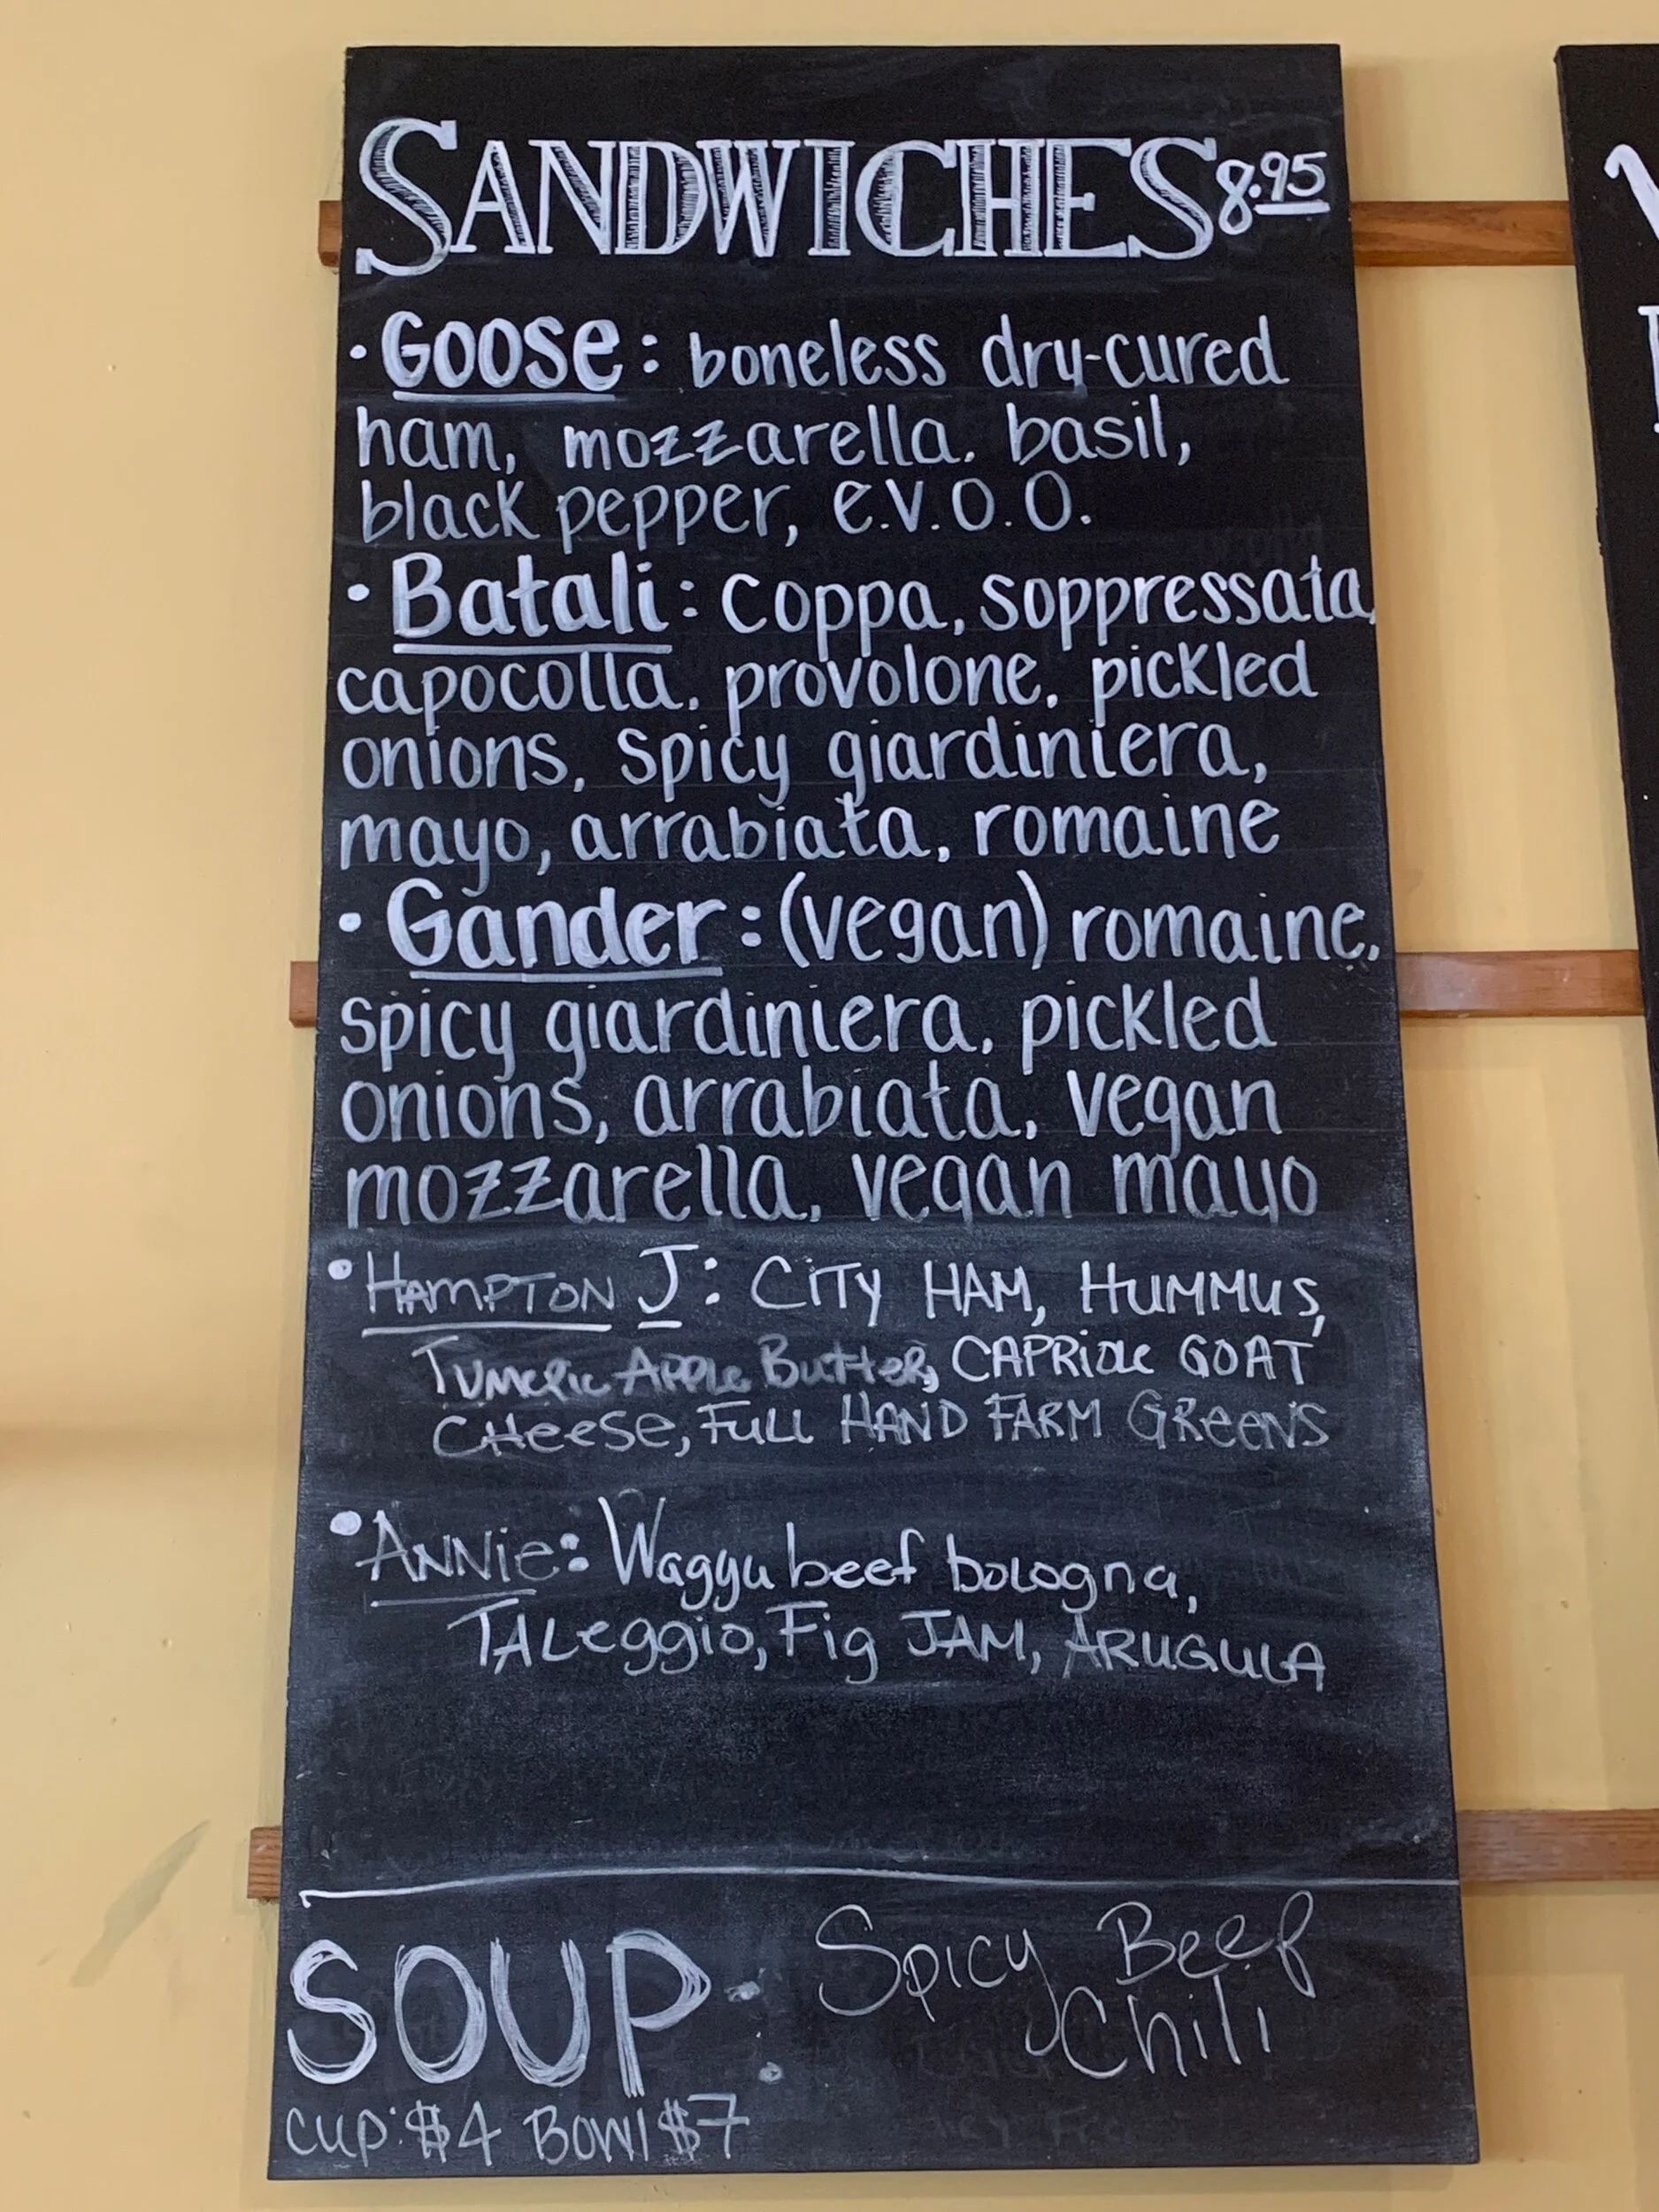 SANDWICHES 8.95
• Goose: boneless dry-cured
ham, mozzarella. basil,
black pepper, e.v.o.o.
• Batali: coppa, soppressata,
capocolla. provolone. pickled
onions, spicy giardiniera,
mayo, arrabiata, romaine
• Gander: (vegan) romaine,
spicy giardiniera. pickled
onions, arrabiata. vegan
mozzarella, vegan mayo
• HAMPTON J: CITY HAM, HUMMUS,
TUMERIC APPLE BUTTER, CAPRIOLE GOAT
CHEESE, FULL HAND FARM GREENS
• ANNIE: Wagyu beef bologna,
TALeggio, Fig JAM, ARUGULA
SOUP: Spicy Beef
Chili
cup: $4 Bowl $7